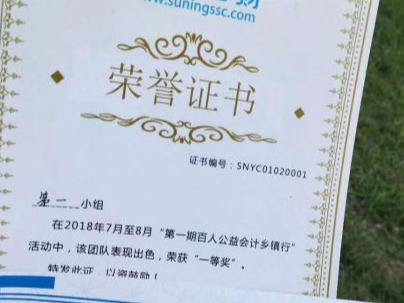 www.suningssc.com
荣誉证书
证书编号：SNYC01020001
第一小组
在2018年7月至8月“第一期百人公益会计乡镇行”
活动中，该团队表现出色，荣获“一等奖”。
特发此证，以资鼓励！